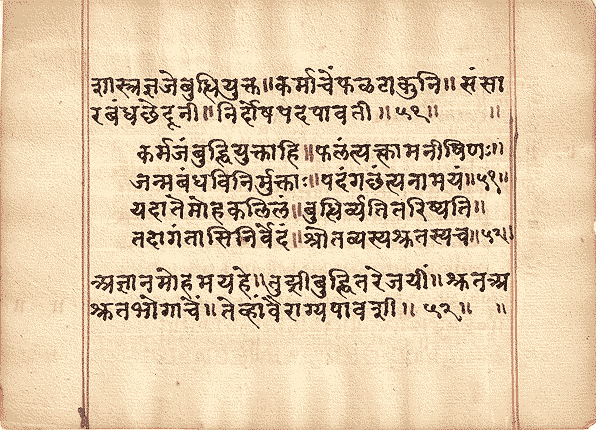 शास्त्रज्ञजेबुध्धियुक्त॥कर्माचेंफळटाकुनि॥ संसा
रबंधछेदूनी॥निर्दोषपदपावती॥५१॥ ॥
कर्मजंबुद्धियुक्ताहि॥फलंत्यक्त्वामनीषिणः॥
जन्मबंधविनिर्मुक्ताः॥पदंगछंत्यनामयं॥५१॥
यदातेमोहकलिलं॥बुध्धिर्व्यतितरिष्यति॥
तदागंतासिनिर्वेदं॥श्रोतव्यस्यश्रुतस्यच॥५२॥
अज्ञानमोहमयहे॥तुझीबुद्धितरेजयीं॥श्रुतअ
श्रुतभोगाचें॥तेव्हांवैराग्यपावशी॥५२॥ ॥